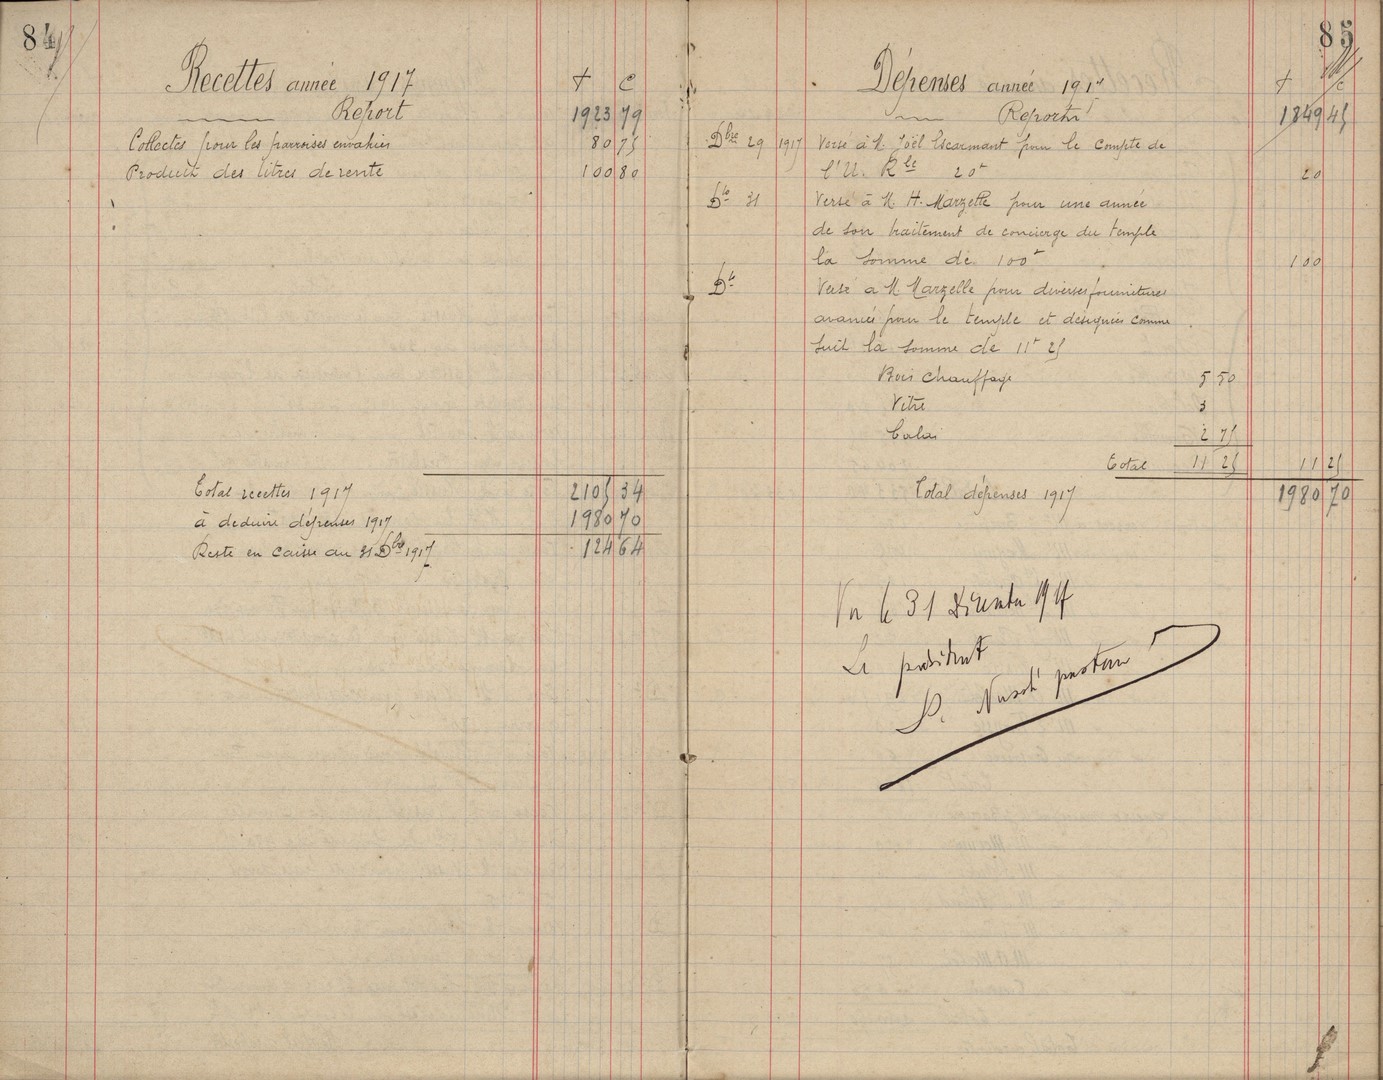 84
Recettes année 1917 f c
Report 1923 79
Collectes pour les parroises envahies 80 75
Produit des titres de rente 100 80
Total recettes 1917 2105 34
à deduire dépenses 1917 1980 70
Reste en caisse au 31 Dbre 1917 124 64
85
Dépenses année 1917 f c
Report 1849 45
Dbre 29 1917 Versé à M. Joël Escarmant pour le compte de
l'U. Rle 20f 20
Dto 31 Versé à M H. Marzelle pour une année
de son traitement de concierge du temple
la somme de 100f 100
Dto Versé a M. Marzelle pour diverses fournitures
avancés pour le temple et désignées comme
suit la somme de 11f 25
Bois chauffage 5 50
Vitre 3
Balai 2 75
Total 11 25 11 25
Total dépenses 1917 1980 70
Vu le 31 Décembre 1917
Le président
pasteur